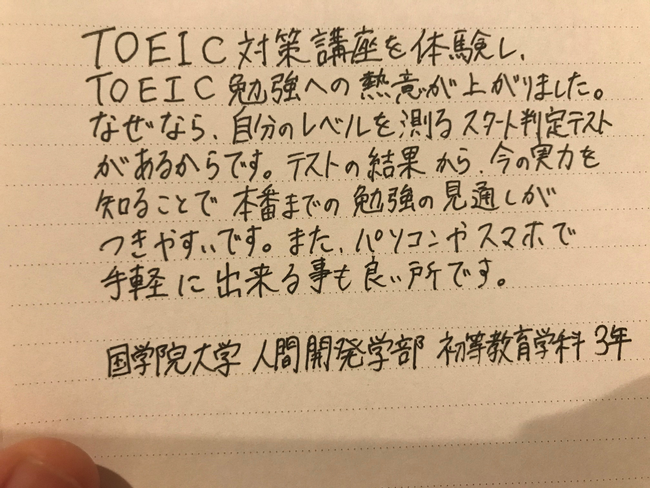 TOEIC 対策講座を体験し、
TOEIC 勉強への熱意が上がりました。
なぜなら、自分のレベルを測るスタート判定テスト
があるからです。テストの結果から、今の実力を
知ることで本番までの勉強の見通しが
つきやすいです。また、パソコンやスマホで
手軽に出来る事も良い所です。
国学院大学 人間開発学部 初等教育学科 3年